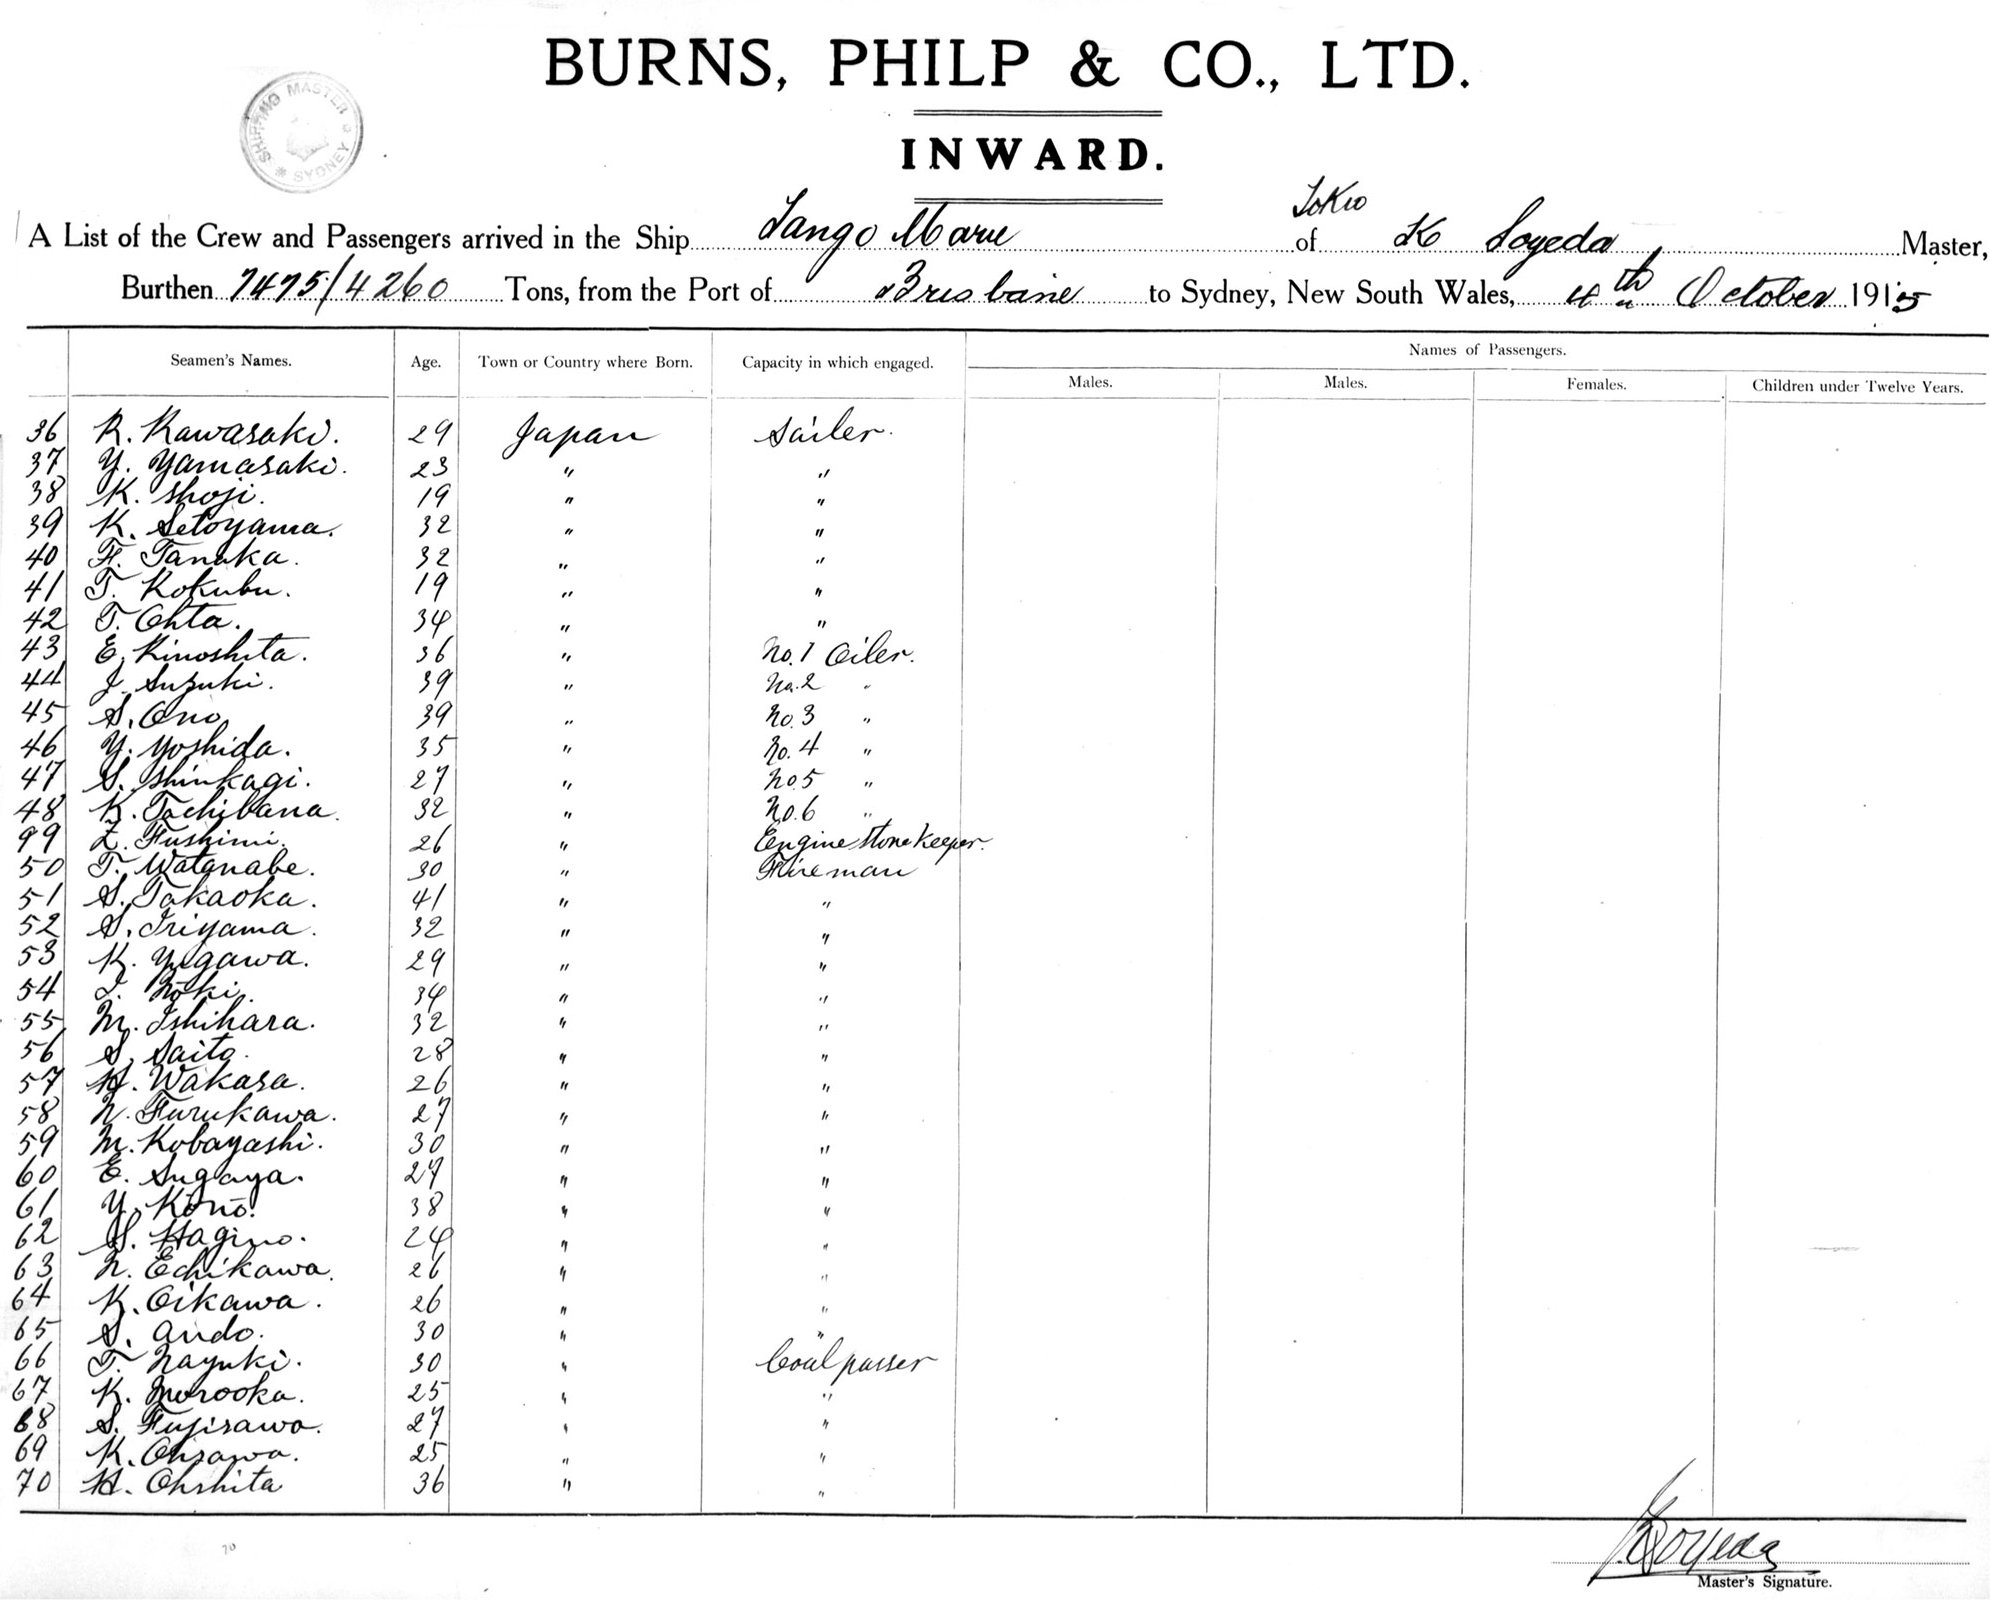 BURNS, PHILP & CO., LTD.
SHIPPING MASTER
SYDNEY
INWARD.
Tokio
A List of the Crew and Passengers arrived in the Ship Tango Maru of K Soyeda, Master,
Burthen 7475/4260 Tons, from the Port of Brisbane to Sydney, New South Wales, 4th October 1915
Names of Passengers.
Seamen's Names. Age. Town or Country where Born. Capacity in which engaged. Males. Males. Females. Children under Twelve Years.
36 K. Kawasaki. 29 Japan Sailer.
37 Y. Yamasaki. 23 " "
38 K. Shoji. 19 " "
39 K. Setoyama. 32 " "
40 F. Tanaka. 32 " "
41 T. Kokubu. 19 " "
42 T. Ohta. 34 " "
43 E. Kinoshita. 36 " No. 1 Oiler.
44 J. Suzuki. 39 " No. 2 "
45 S. Ono 39 " No. 3 "
46 Y. Yoshida. 35 " No. 4 "
47 S. Shinkagi. 27 " No 5 "
48 K. Tachibana. 32 " No. 6 "
49 Z. Fushimi. 26 " Engine Storekeeper.
50 T. Watanabe. 30 " Fireman
51 S. Takaoka. 41 " "
52 S. Iriyama. 32 " "
53 K. Yugawa. 29 " "
54 Noki. 34 " "
55 M. Ishihara. 32 " "
56 S. Saito. 28 " "
57 H. Wakasa. 26 " "
58 N. Furukawa. 27 " "
59 M. Kobayashi. 30 " "
60 E. Sugaya. 27 " "
61 Y. Kono. 38 " "
62 S. Hagino. 24 " "
63 N. Echikawa. 26 " "
64 K. Oikawa. 26 " "
65 S. Ando. 30 " "
66 T. Nayuki. 30 " Coal passer
67 K. Morooka. 25 " "
68 S. Fujisawa. 27 " "
69 K. Ohsawa. 25 " "
70 H. Ohshita 36 " "
70
K Soyeda
Master's Signature.